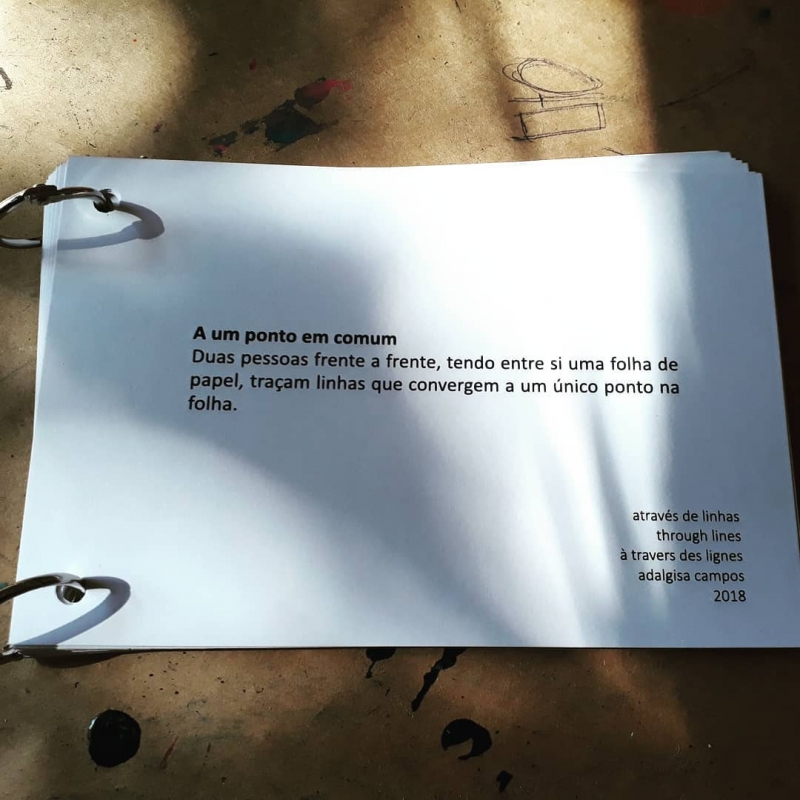 A um ponto em comum
Duas pessoas frente a frente, tendo entre si uma folha de
papel, traçam linhas que convergem a um único ponto na
folha.
através de linhas
through lines
à travers des lignes
adalgisa campos
2018